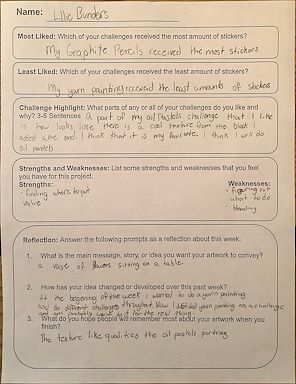 Name: Lillie Bunders
Most Liked: Which of your challenges received the most amount of stickers?
My Graphite Pencils received the most stickers
Least Liked: Which of your challenges received the least amount of stickers?
My yarn painting received the least amounts of stickers
Challenge Highlight: What parts of any or all of your challenges do you like and
why? 3-5 Sentences A part of my oil Pastels challenge that I like
is how looks like there is a cool texture from the black I
added at the end. I think that it is my favorite. I think I will do
oil pastels
Strengths and Weaknesses: List some strengths and weaknesses that you feel
you have for this project.
Strengths: Weaknesses:
· finding where to put · figuring out
value what to do
blending
Reflection: Answer the following prompts as a reflection about this week:
1. What is the main message, story, or idea you want your artwork to convey?
a vase of flowers sitting on a table.
2. How has your idea changed or developed over this past week?
At the beginning of the week I wanted to do a yarn painting
and do different challenges throughout. Now I did yarn painting as a challenge
and am probably won't do it for the real thing
3. What do you hope people will remember most about your artwork when you
finish?
The texture like qualities the oil pastels portray